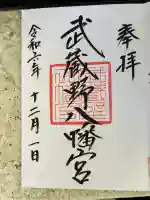 奉拝
武蔵野八幡宮
令和六年 十二月一日